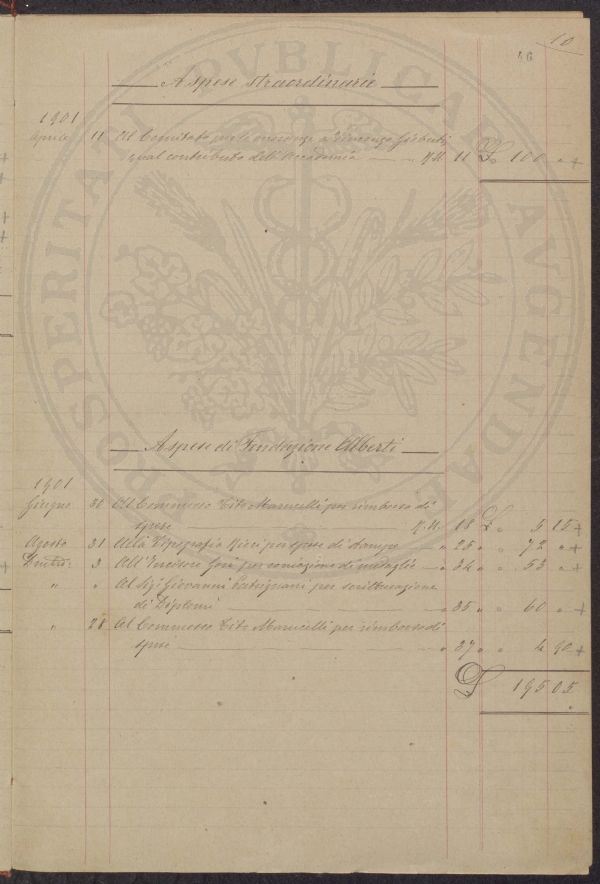 10
A spese straordinarie
1901
Aprile 11 Al Comitato per le onoranze a Vincenzo Gioberti
qual contributo dell'Accademia N. M. 11 £ 100 "
A spese di Fondazione Alberti
1901
Giugno 30 Al Commesso Tito Marucelli per rimborso di
spese N. M. 18 £ " 5 15
Agosto 31 Alla Tipografia Ricci per spese di stampa " 25 " " 72 "
9 All'Incisore Gori per coniazione di medaglie " 34 " " 53 "
" " Al Sig. Giovanni Patrignani per scritturazione
di Diplomi " 35 " " 60 "
" 28 Al Commesso Tito Marucelli per rimborso di
spese " 37 " " 4 90
£ 195 05
PROSPERITATI PVBLICAE AVGENDAE